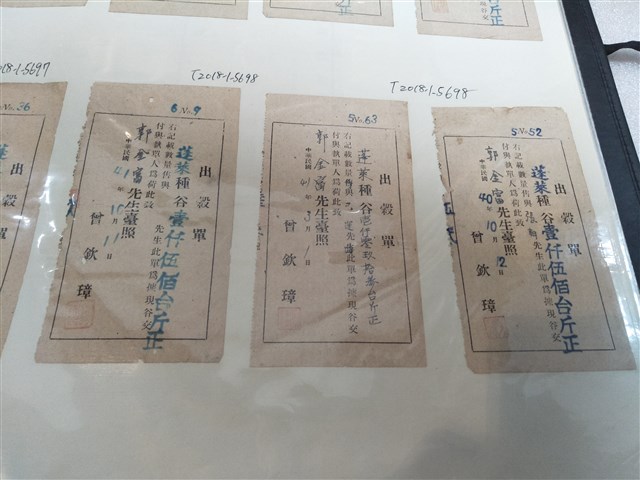 斤正
018-1-5697
T2018-1-5698
T2018-1-5698
No.36
6 No.9
出穀單
蓬萊種谷壹仟伍佰台斤正
右記載數量售與
先生此單爲憑現谷交
付與執單人爲荷此致
郭金富先生臺照
中華民國41年10月11
曾欽璋
5 No.63
出穀單
蓬萊種谷
台斤正
右記載數量售與
先生此單爲憑現谷交
付與執單人爲荷此致
郭金富先生臺照
中華民國41年3月1
曾欽璋
5 No.52
出穀單
蓬萊種谷壹仟伍佰台斤正
右記載數量售與
先生此單爲憑現谷交
付與執單人爲荷此致
郭金富先生臺照
中華民國40年10月12日
曾欽璋